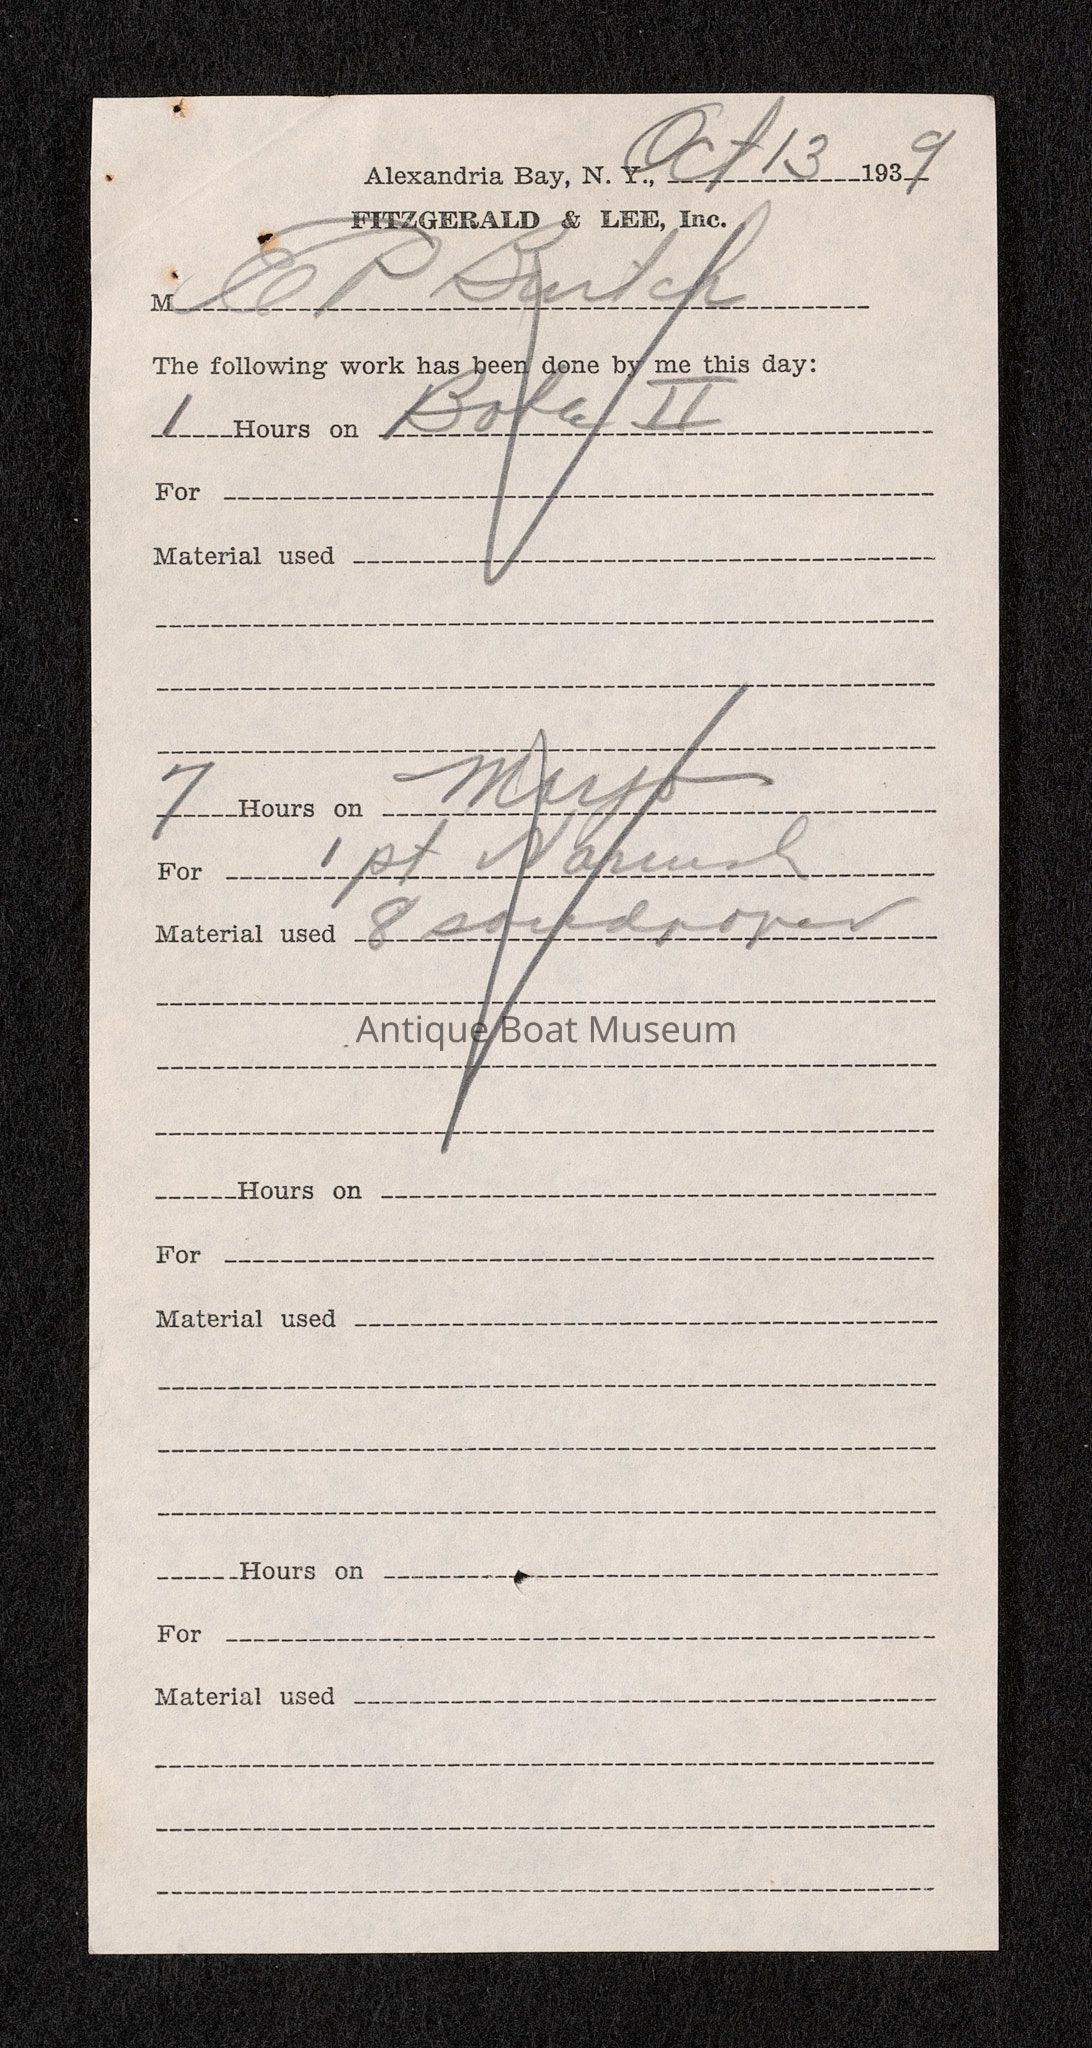 Alexandria Bay, N. Y., Oct 13 1939
FITZGERALD & LEE, Inc.
M E P Burtch
The following work has been done by me this day:
1 Hours on II
For
Material used
7 Hours on
For 1 pt Varnish
Material used 8 sandpaper
Antique Boat Museum
Hours on
For
Material used
Hours on
For
Material used